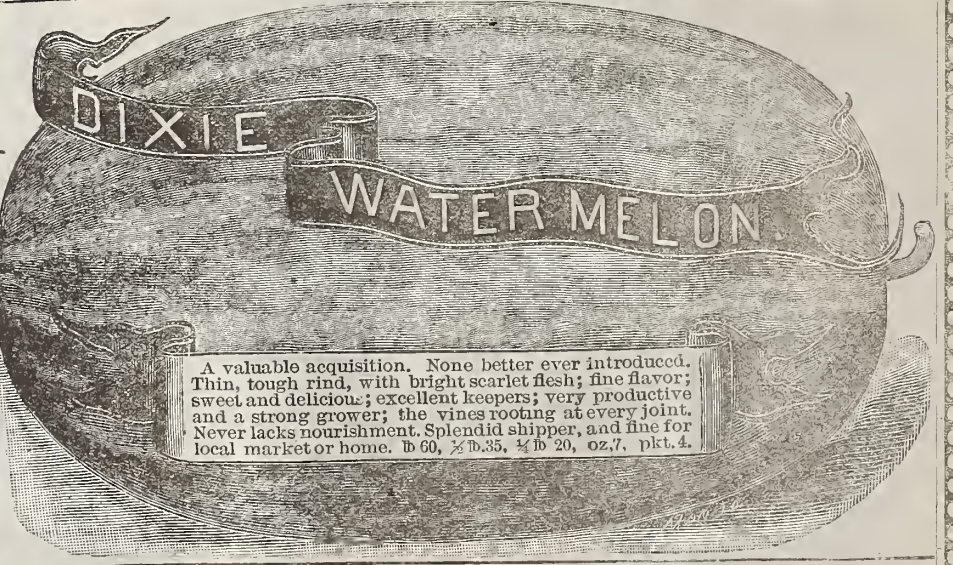 DIXIE
WATER MELON.
A valuable acquisition. None better ever introduced.
Thin, tough rind, with bright scarlet flesh; fine flavor;
sweet and delicious; excellent keepers; very productive
and a strong grower; the vines rooting at every joint.
Never lacks nourishment. Splendid shipper, and fine for
local market or home. ℔ 60, ½ ℔.35, ¼ ℔ 20, oz,7, pkt.4.